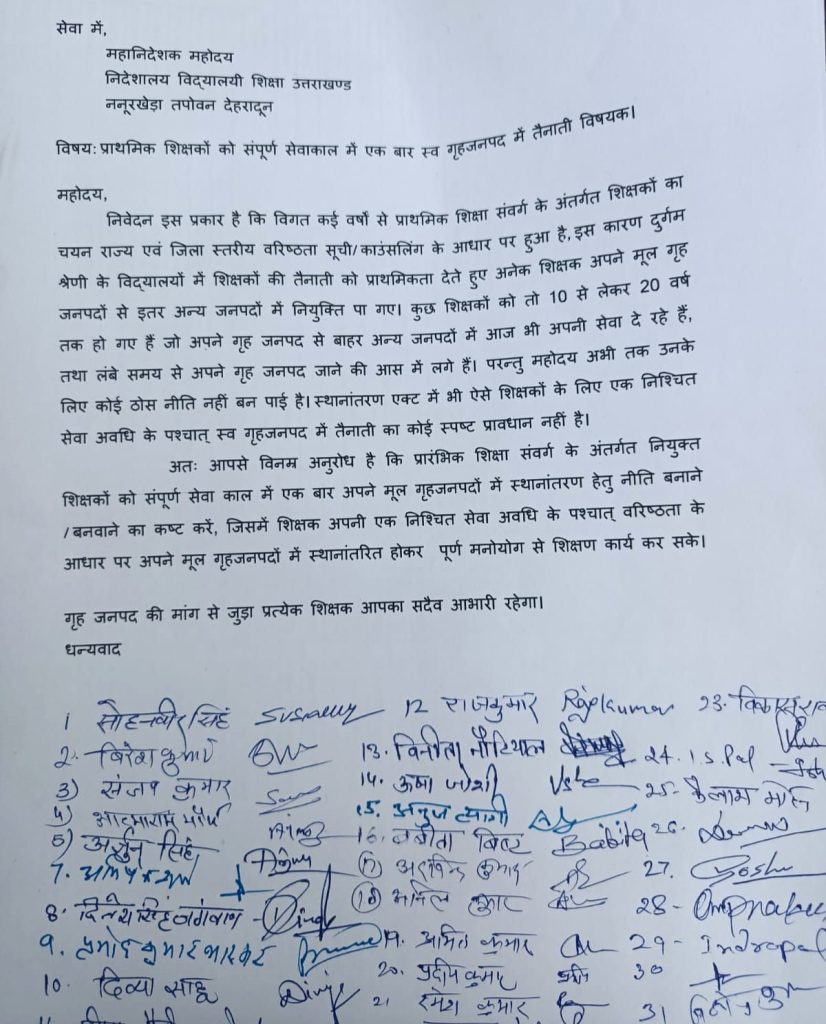 सेवा में,
महानिदेशक महोदय
निदेशालय विद्यालयी शिक्षा उत्तराखण्ड
ननूरखेड़ा तपोवन देहरादून
विषय: प्राथमिक शिक्षकों को संपूर्ण सेवाकाल में एक बार स्व गृहजनपद में तैनाती विषयक।
महोदय,
निवेदन इस प्रकार है कि विगत कई वर्षो से प्राथमिक शिक्षा संवर्ग के अंतर्गत शिक्षकों का
चयन राज्य एवं जिला स्तरीय वरिष्ठता सूची/काउंसलिंग के आधार पर हुआ है,इस कारण दुर्गम
श्रेणी के विद्यालयों में शिक्षकों की तैनाती को प्राथमिकता देते हुए अनेक शिक्षक अपने मूल गृह
जनपदों से इतर अन्य जनपदों में नियुक्ति पा गए। कुछ शिक्षकों को तो 10 से लेकर 20 वर्ष
तक हो गए हैं जो अपने गृह जनपद से बाहर अन्य जनपदों में आज भी अपनी सेवा दे रहे हैं,
तथा लंबे समय से अपने गृह जनपद जाने की आस में लगे हैं। परन्तु महोदय अभी तक उनके
लिए कोई ठोस नीति नहीं बन पाई है। स्थानांतरण एक्ट में भी ऐसे शिक्षकों के लिए एक निश्चित
सेवा अवधि के पश्चात् स्व गृहजनपद में तैनाती का कोई स्पष्ट प्रावधान नहीं है।
अतः आपसे विनम्र अनुरोध है कि प्रारंभिक शिक्षा संवर्ग के अंतर्गत नियुक्त
शिक्षकों को संपूर्ण सेवा काल में एक बार अपने मूल गृहजनपदों में स्थानांतरण हेतु नीति बनाने
/बनवाने का कष्ट करें, जिसमें शिक्षक अपनी एक निश्चित सेवा अवधि के पश्चात् वरिष्ठता के
आधार पर अपने मूल गृहजनपदों में स्थानांतरित होकर पूर्ण मनोयोग से शिक्षण कार्य कर सके।
गृह जनपद की मांग से जुड़ा प्रत्येक शिक्षक आपका सदैव आभारी रहेगा।
धन्यवाद
1 सोहनवीर सिंह
2. कुमार
3) संजय कुमार
4) आत्माराम
5) अर्जुन सिंह
7.
8. दिनेश सिंह
9. प्रमोद कुमार भास्कर
10. दिव्या साहू
12 राजकुमार Rajkumar
13. विनीता नौटियाल
14. ऊषा जोशी Usha
15. अनुज त्यागी
16. बबीता Babita
17) अरविन्द कुमार
18) अनिल कुमार
19. अमित कुमार
20. प्रदीप कुमार
21 रमेश कुमार
23.
24. I.S. Pal
25. कैलाश
26.
27.
28-
29- Indrapal
30
31